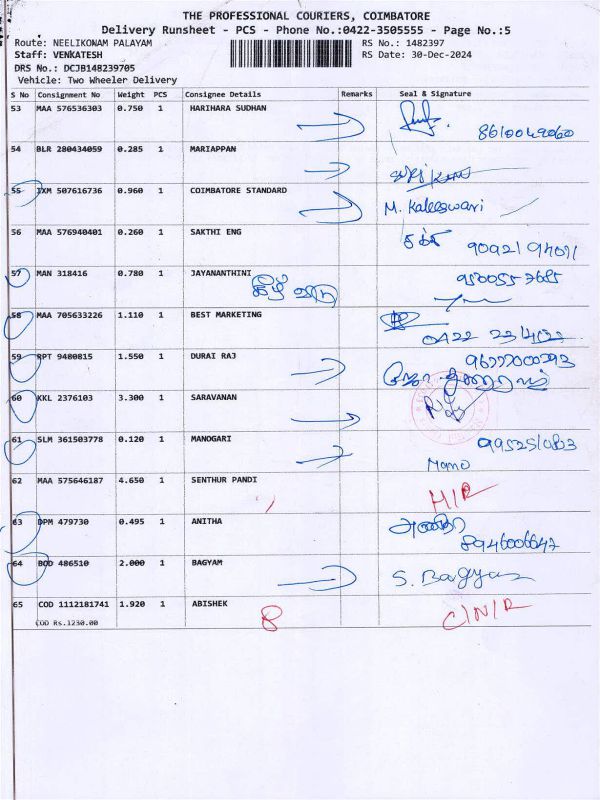 THE PROFESSIONAL COURIERS, COIMBATORE
Delivery Runsheet - PCS - Phone No.:0422-3505555 - Page No.:5
Route: NEELIKONAM PALAYAM RS No.: 1482397
Staff: VENKATESH RS Date: 30-Dec-2024
DRS No.: DCJB148239705
Vehicle: Two Wheeler Delivery
S No Consignment No Weight PCS Consignee Details Remarks Seal & Signature
53 MAA 576536303 0.750 1 HARIHARA SUDHAN
8610049060
54 BLR 280434059 0.285 1 MARIAPPAN
55 IXM 507616736 0.960 1 COIMBATORE STANDARD
M. Kaleeswari
56 MAA 576940401 0.260 1 SAKTHI ENG
57 MAN 318416 0.780 1 JAYANANTHINI
58 MAA 705633226 1.110 1 BEST MARKETING
59 RPT 9480815 1.550 1 DURAI RAJ
60 KKL 2376103 3.300 1 SARAVANAN
61 SLM 361503778 0.120 1 MANOGARI
Mano
62 MAA 575646187 4.650 1 SENTHUR PANDI
63 DPM 479730 0.495 1 ANITHA
8946006647
64 BOD 486510 2.000 1 BAGYAM
S. Bagyam
65 COD 1112181741 1.920 1 ABISHEK
8 C/N/R
COD Rs.1230.00